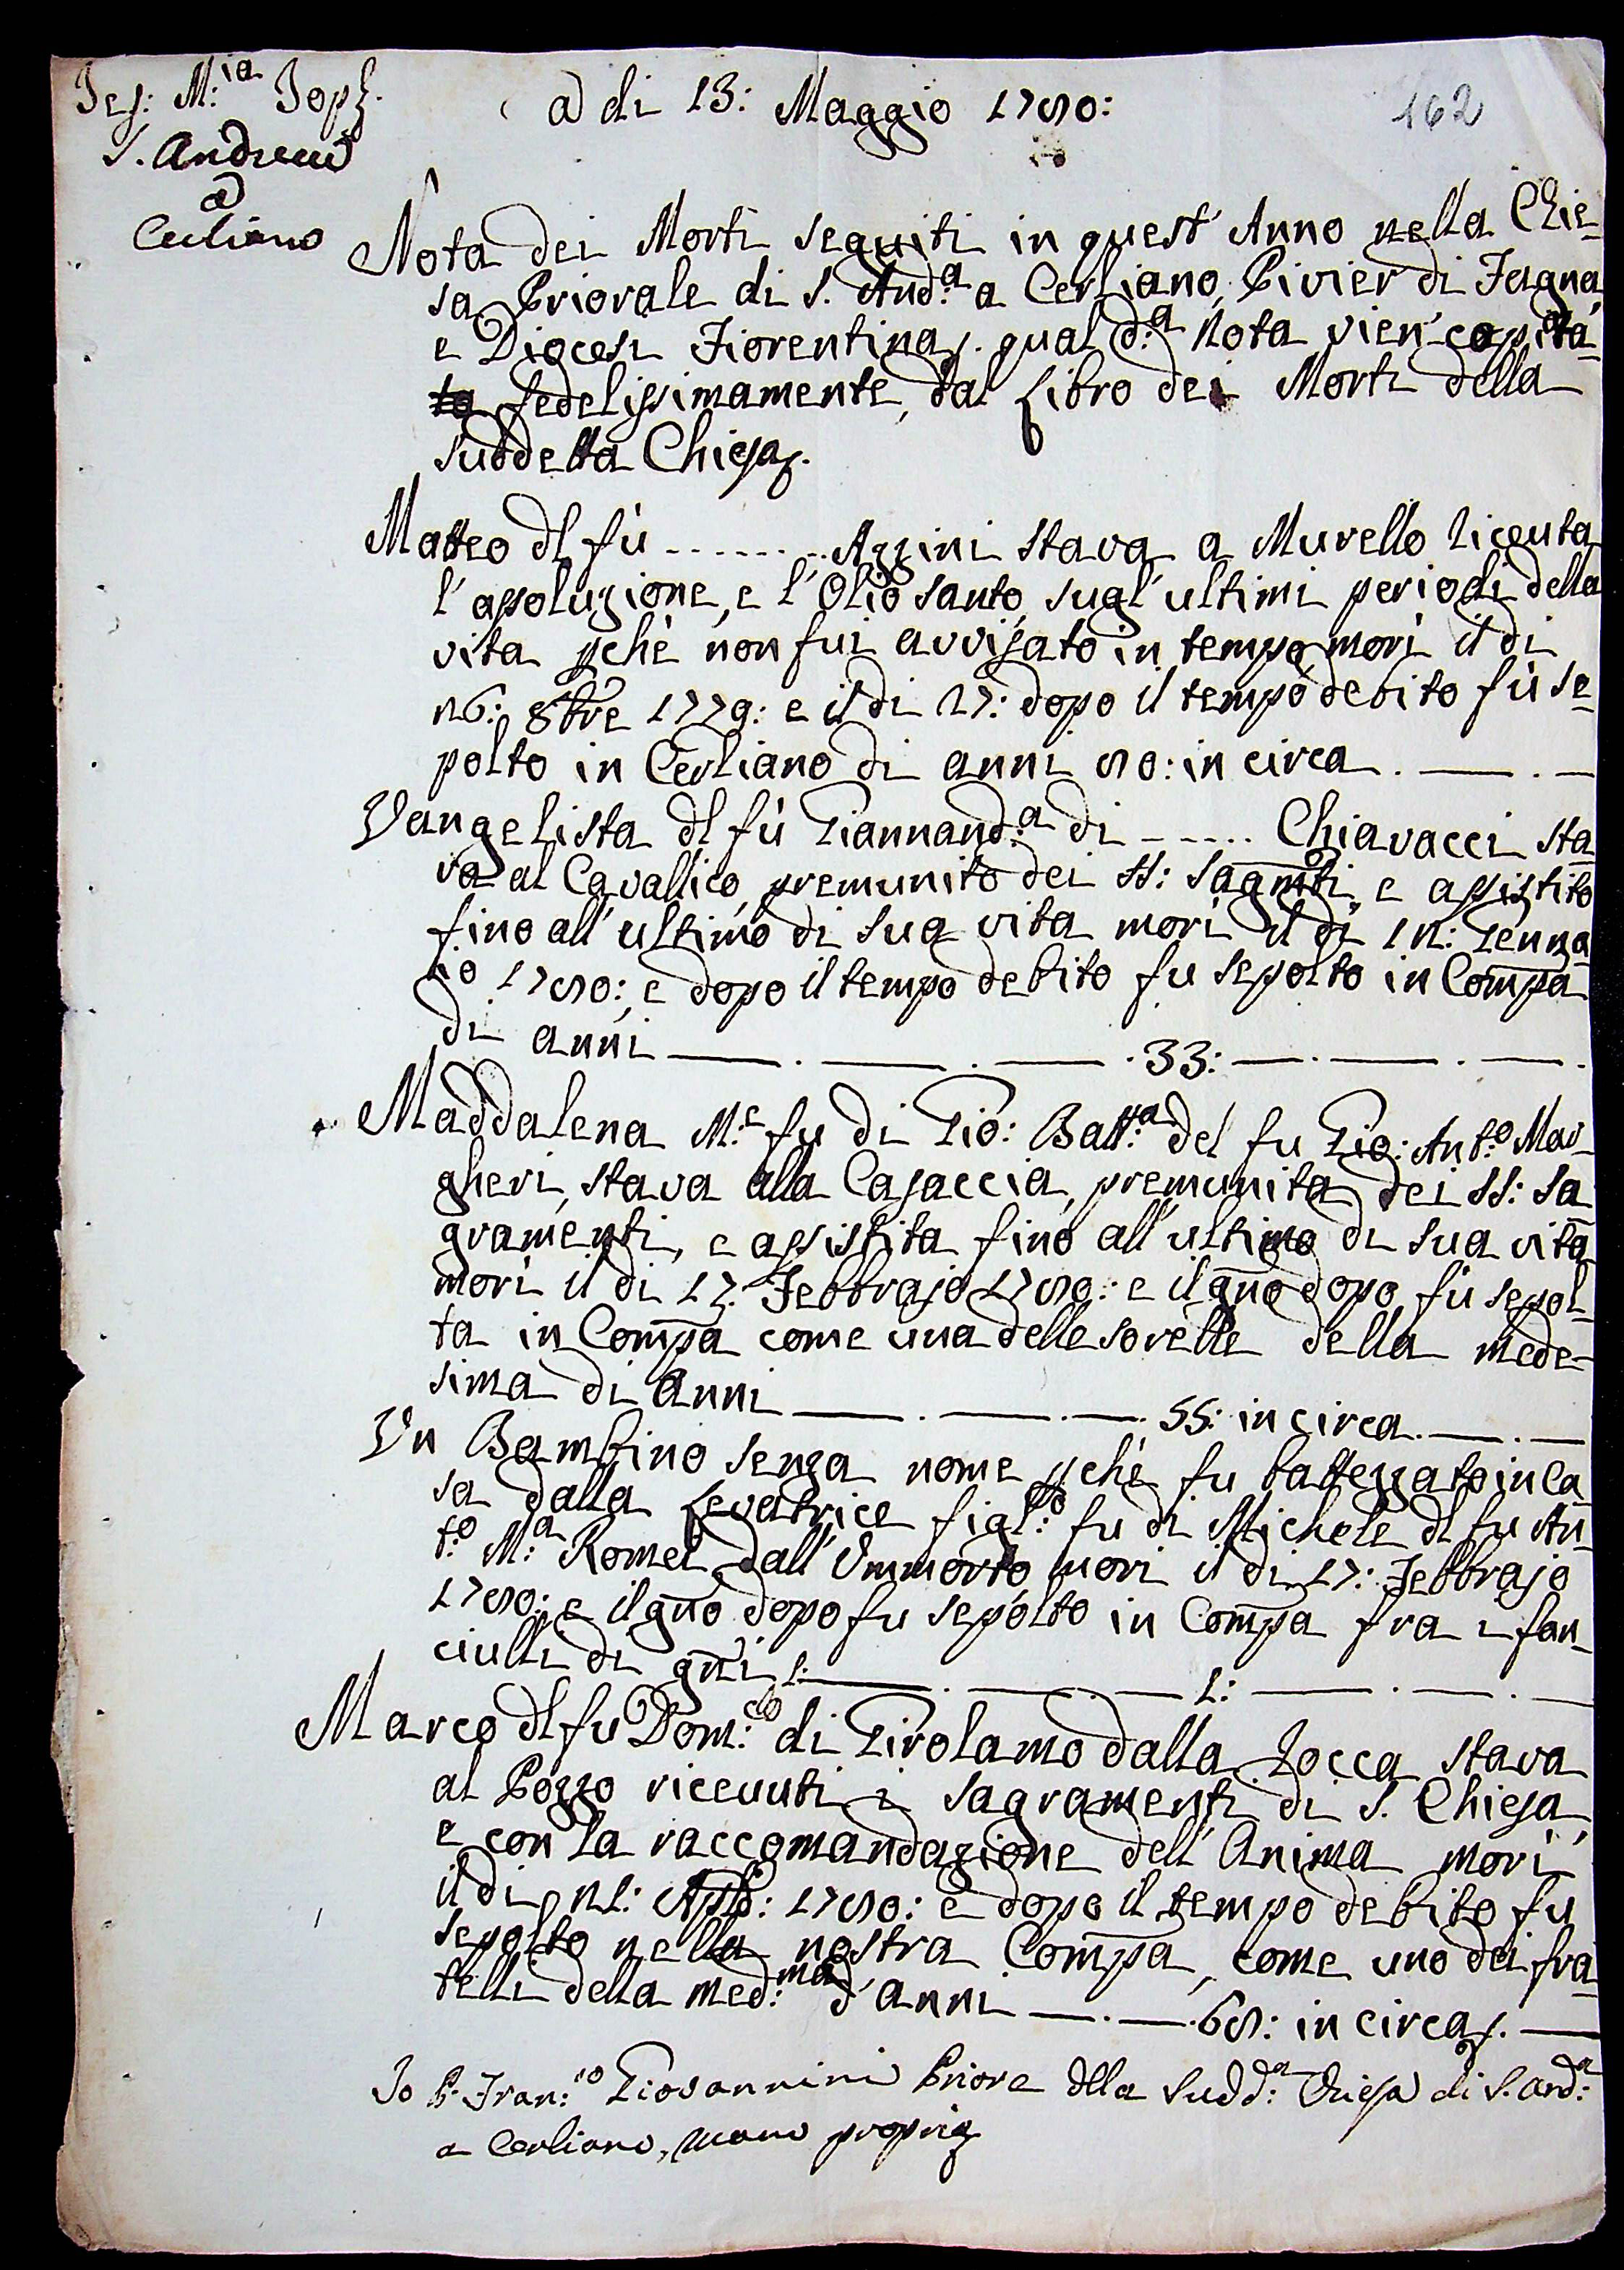 Jes: M:ia Joph.
S. Andrea
a
Cerliano
a di 13: Maggio 1780:
162
Nota dei Morti seguiti in quest' Anno nella Chie=
sa Priorale di S. And:a a Cerliano, Pivier di Fagna,
e Diocesi Fiorentina, qual d:a Nota vien copiata
fedelissimamente, dal Libro dei Morti della
suddetta Chiesa.
Matteo dl fù ........ Azzini stava a Murello ricevuta
l'assoluzione, e l'Olio santo, sugl'ultimi periodi della
vita pchè non fui avvisato in tempo, morì il di
26: 8bre 1779: e il di 27: dopo il tempo debito fù se=
polto in Cerliano di anni 80: in circa. — . —
Vangelista dl fù Giannand:a di ..... Chiavacci sta=
va al Cavallico, premunito dei SS: Sagmti, e assistito
fino all'ultimo di sua vita morì il di 12: Genna=
io 1780: e dopo il tempo debito fu sepolto in Compa
di anni — . — . — . 33: — . — . — .
Maddalena M:e fu di Gio: Batt:a del fu Gio: Ant:o Mar=
gheri, stava alla Casaccia, premunita dei SS: Sa=
gramenti, e assistita fino all'ultimo di sua vita
morì il di 17. Febbrajo 1780: e il gno dopo fù sepol=
ta in Compa come una delle sorelle della mede=
sima di anni — . — . — . 55: in circa. — . —
Un Bambino senza nome pchè fu battezzato in Ca=
sa dalla Levatrice figl:o fu di Michele dl fu An=
t:o M:a Romei dall'Ommorto, morì il di 17: Febbrajo
1780: e il gno dopo fu sepolto in Compa fra i fan=
ciulli di gni 1: — . — . — 1: — . — . —
Marco dl fu Dom:co di Girolamo dalla Rocca stava
al Pozzo ricevuti i sagramenti di S. Chiesa,
e con la raccomandazione dell'Anima morì
il di 21: Aple: 1780: e dopo il tempo debito fu
sepolto nella nostra Compa, come uno dei fra=
telli della med:ma d'anni — . — . 68: in circa. —
Io P. Fran:co Giovannini Priore dlla Sudd:a Chiesa di S. And:a
a Cerliano, mano propria